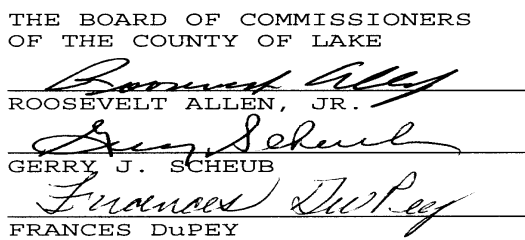 THE BOARD OF COMMISSIONERS
OF THE COUNTY OF LAKE
Roosevelt Allen
ROOSEVELT ALLEN, JR.
Gerry Scheub
GERRY J. SCHEUB
Frances DuPey
FRANCES DuPEY